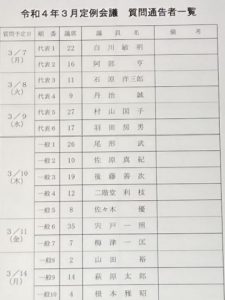 令和4年3月定例会議 質問通告者一覧
質問予定日 順番 議席 議員名 備考
3/7(月) 代表1 22 白川敏明
代表2 16 阿部亨
3/8(火) 代表3 11 石原洋三郎
代表4 9 丹治誠
3/9(水) 代表5 27 村山国子
代表6 17 羽田房男
3/10(木) 一般1 26 尾形武
一般2 10 佐原真紀
一般3 19 後藤善次
一般4 12 二階堂利枝
一般5 8 佐々木優
3/11(金) 一般6 35 宍戸一照
一般7 7 梅津一匡
3/14(月) 一般8 2 山田裕
一般9 14 萩原太郎
一般10 4 根本雅昭